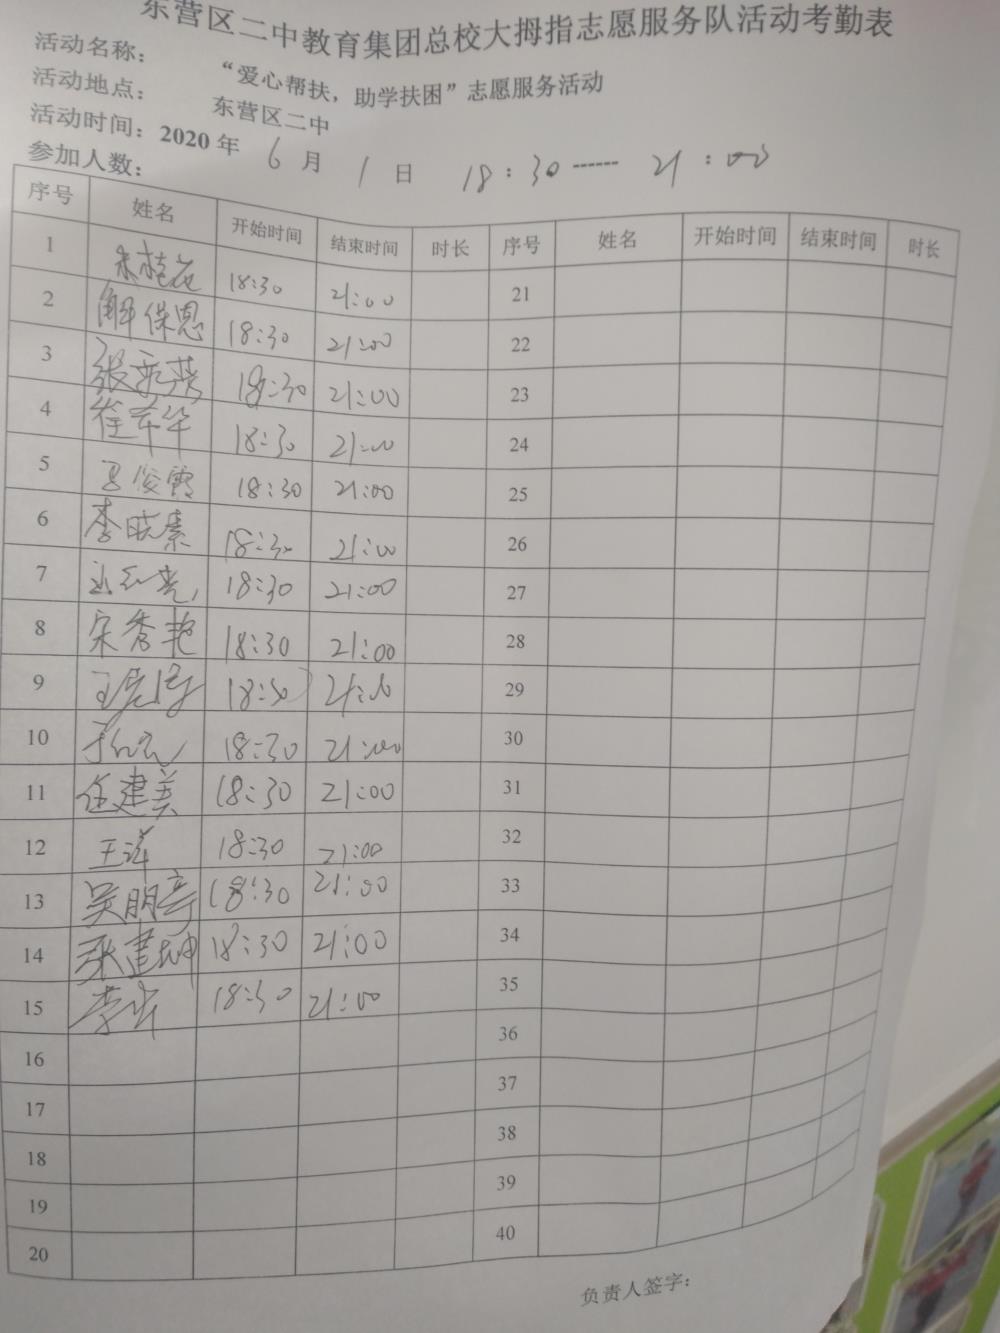 东营区二中教育集团总校大拇指志愿服务队活动考勤表
活动名称： “爱心帮扶，助学扶困”志愿服务活动
活动地点： 东营区二中
活动时间：2020年 6 月 1 日 18：30------ 21：00
参加人数：
序号 姓名 开始时间 结束时间 时长 序号 姓名 开始时间 结束时间 时长
1 朱桂花 18:30 21:00 21
2 解保恩 18:30 21:00 22
3 18:30 21:00 23
4 18:30 21:00 24
5 18:30 21:00 25
6 李晓素 18:30 21:00 26
7 18:30 21:00 27
8 宋秀艳 18:30 21:00 28
9 18:30 21:00 29
10 18:30 21:00 30
11 任建美 18:30 21:00 31
12 王洋 18:30 21:00 32
13 吴朋亭 18:30 21:00 33
14 张建坤 18:30 21:00 34
15 18:30 21:00 35
16 36
17 37
18 38
19 39
20 40
负责人签字：